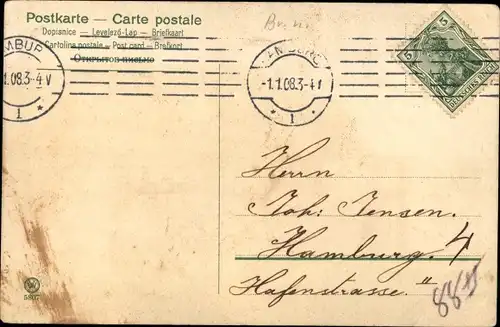 Postkarte — Carte postale
Dopisnice — Levelezö-Lap — Briefkaart
Cartolina postale — Post card — Brefkort
Открытое письмо
HAMBURG
-1.1.08.3-4V
1
HAMBURG
-1.1.08.3-4V
*1*
5
5
DEUTSCHES REICH
Herrn
Joh: Jensen.
Hamburg. 4
Hafenstrasse. II
88
5807